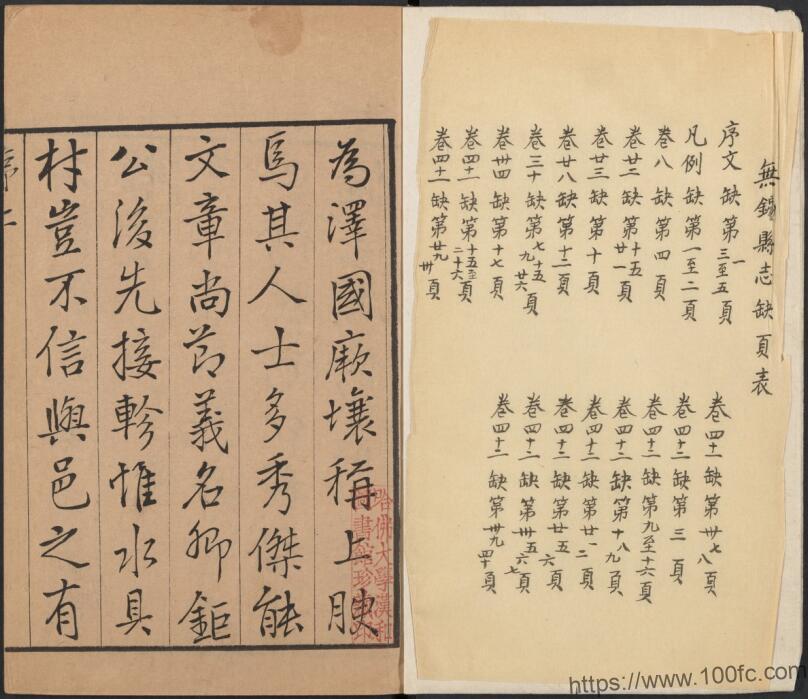 無錫縣志缺頁表
序文缺第一三至五頁
凡例缺第一至二頁
卷八缺第四頁
卷廿二缺第十五廿一頁
卷廿三缺第十頁
卷廿八缺第十二頁
卷三十缺第七十五九廿六頁
卷卅四缺第十七頁
卷四十一缺第十五至二十六頁
卷四十一缺第廿九卅頁
卷四十一缺第卅七八頁
卷四十二缺第三頁
卷四十二缺第九至十六頁
卷四十二缺第十八九頁
卷四十二缺第廿一二頁
卷四十二缺第廿五六頁
卷四十二缺第卅五六七頁
卷四十二缺第卅九四十頁
為澤國厥壤稱上腴
焉其人士多秀傑能
文章尚節義名卿鉅
公後先接軫惟水具
村豈不信與邑之有
哈佛大學漢和
圖書館珍藏印
https://www.100fc.com